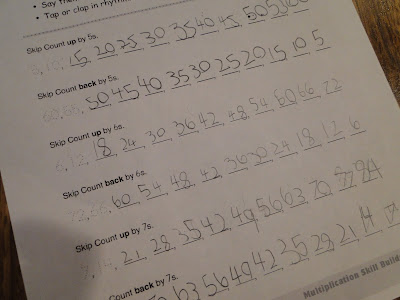 • Say
• Tap or clap in rhyth
Skip Count up by 5s.
5, 10, 15 20 25 30 35 40 45 50 55 60
Skip Count back by 5s.
60, 55, 50 45 40 35 30 25 20 15 10 5
Skip Count up by 6s.
6, 12, 18 24 30 36 42 48 54 60 66 72
Skip Count back by 6s.
72, 66, 60 54 48 42 36 30 24 18 12 6
Skip Count up by 7s.
7, 14, 21 28 35 42 49 56 63 70 84
Count back by 7s.
63 56 49 42 35 28 21 14
Multiplication Skill Build